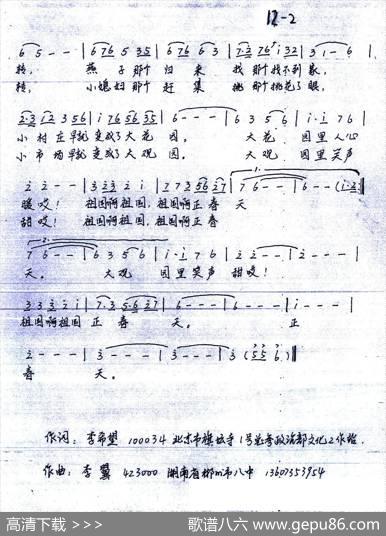 12-2
6 5 - - | 6 7 6 5 3 5 | 6 7 6 6 3 | 7·2 7 6 i 3 2 | 3 i - 6 |
转， 燕子那个归来 找那个找不到家，
转， 小媳妇那个赶集 挑那个挑花了眼，
2·3 i 2 3 5 6 | i 7 6 5 6 3 5 | 6 - - - | 6 3 5 6 | i·i 7 6 |
小村庄早就变成了大花园。 大花园里人心
小市场早就变成了大观园。 大观园里笑声
2 2 - - | 3 2 3 2 i | 7 7 2 5 6 2 7 | 7 6 - - | 6 - - (i·2) :|
暖哎！ 祖国啊祖国，祖国啊正春天
甜哎！ 祖国啊祖国，祖国啊正春
7 6 - - | 6 3 5 6 | i·i 7 6 | 2 2 - - | 2 - - - |
天。 大观园里笑声 甜哎！
3 3 3 2 i | 7·3 5·6 2 7 | 6 - - - | 6 - - - | i - - - |
祖国啊祖国正春 天。 正
2 - - - | 3 - - - | 3 - - - | 3 (5 5 6) ||
春 天。
作词：李希望 100034 北京市旃坛寺1号总参政治部文化工作站
作曲：李翼 423000 湖南省郴州市八中 13607353954
高清下载 >>>
歌谱八六 www.gepu86.com